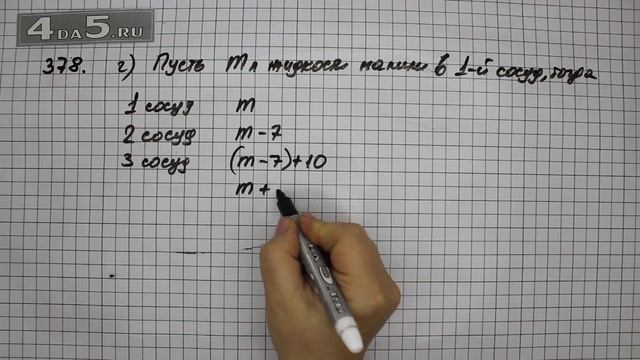 4DA5.RU
378. г) Пусть m л жидкости налили в 1-й сосуд, тогда
1 сосуд m
2 сосуд m - 7
3 сосуд (m - 7) + 10
m +